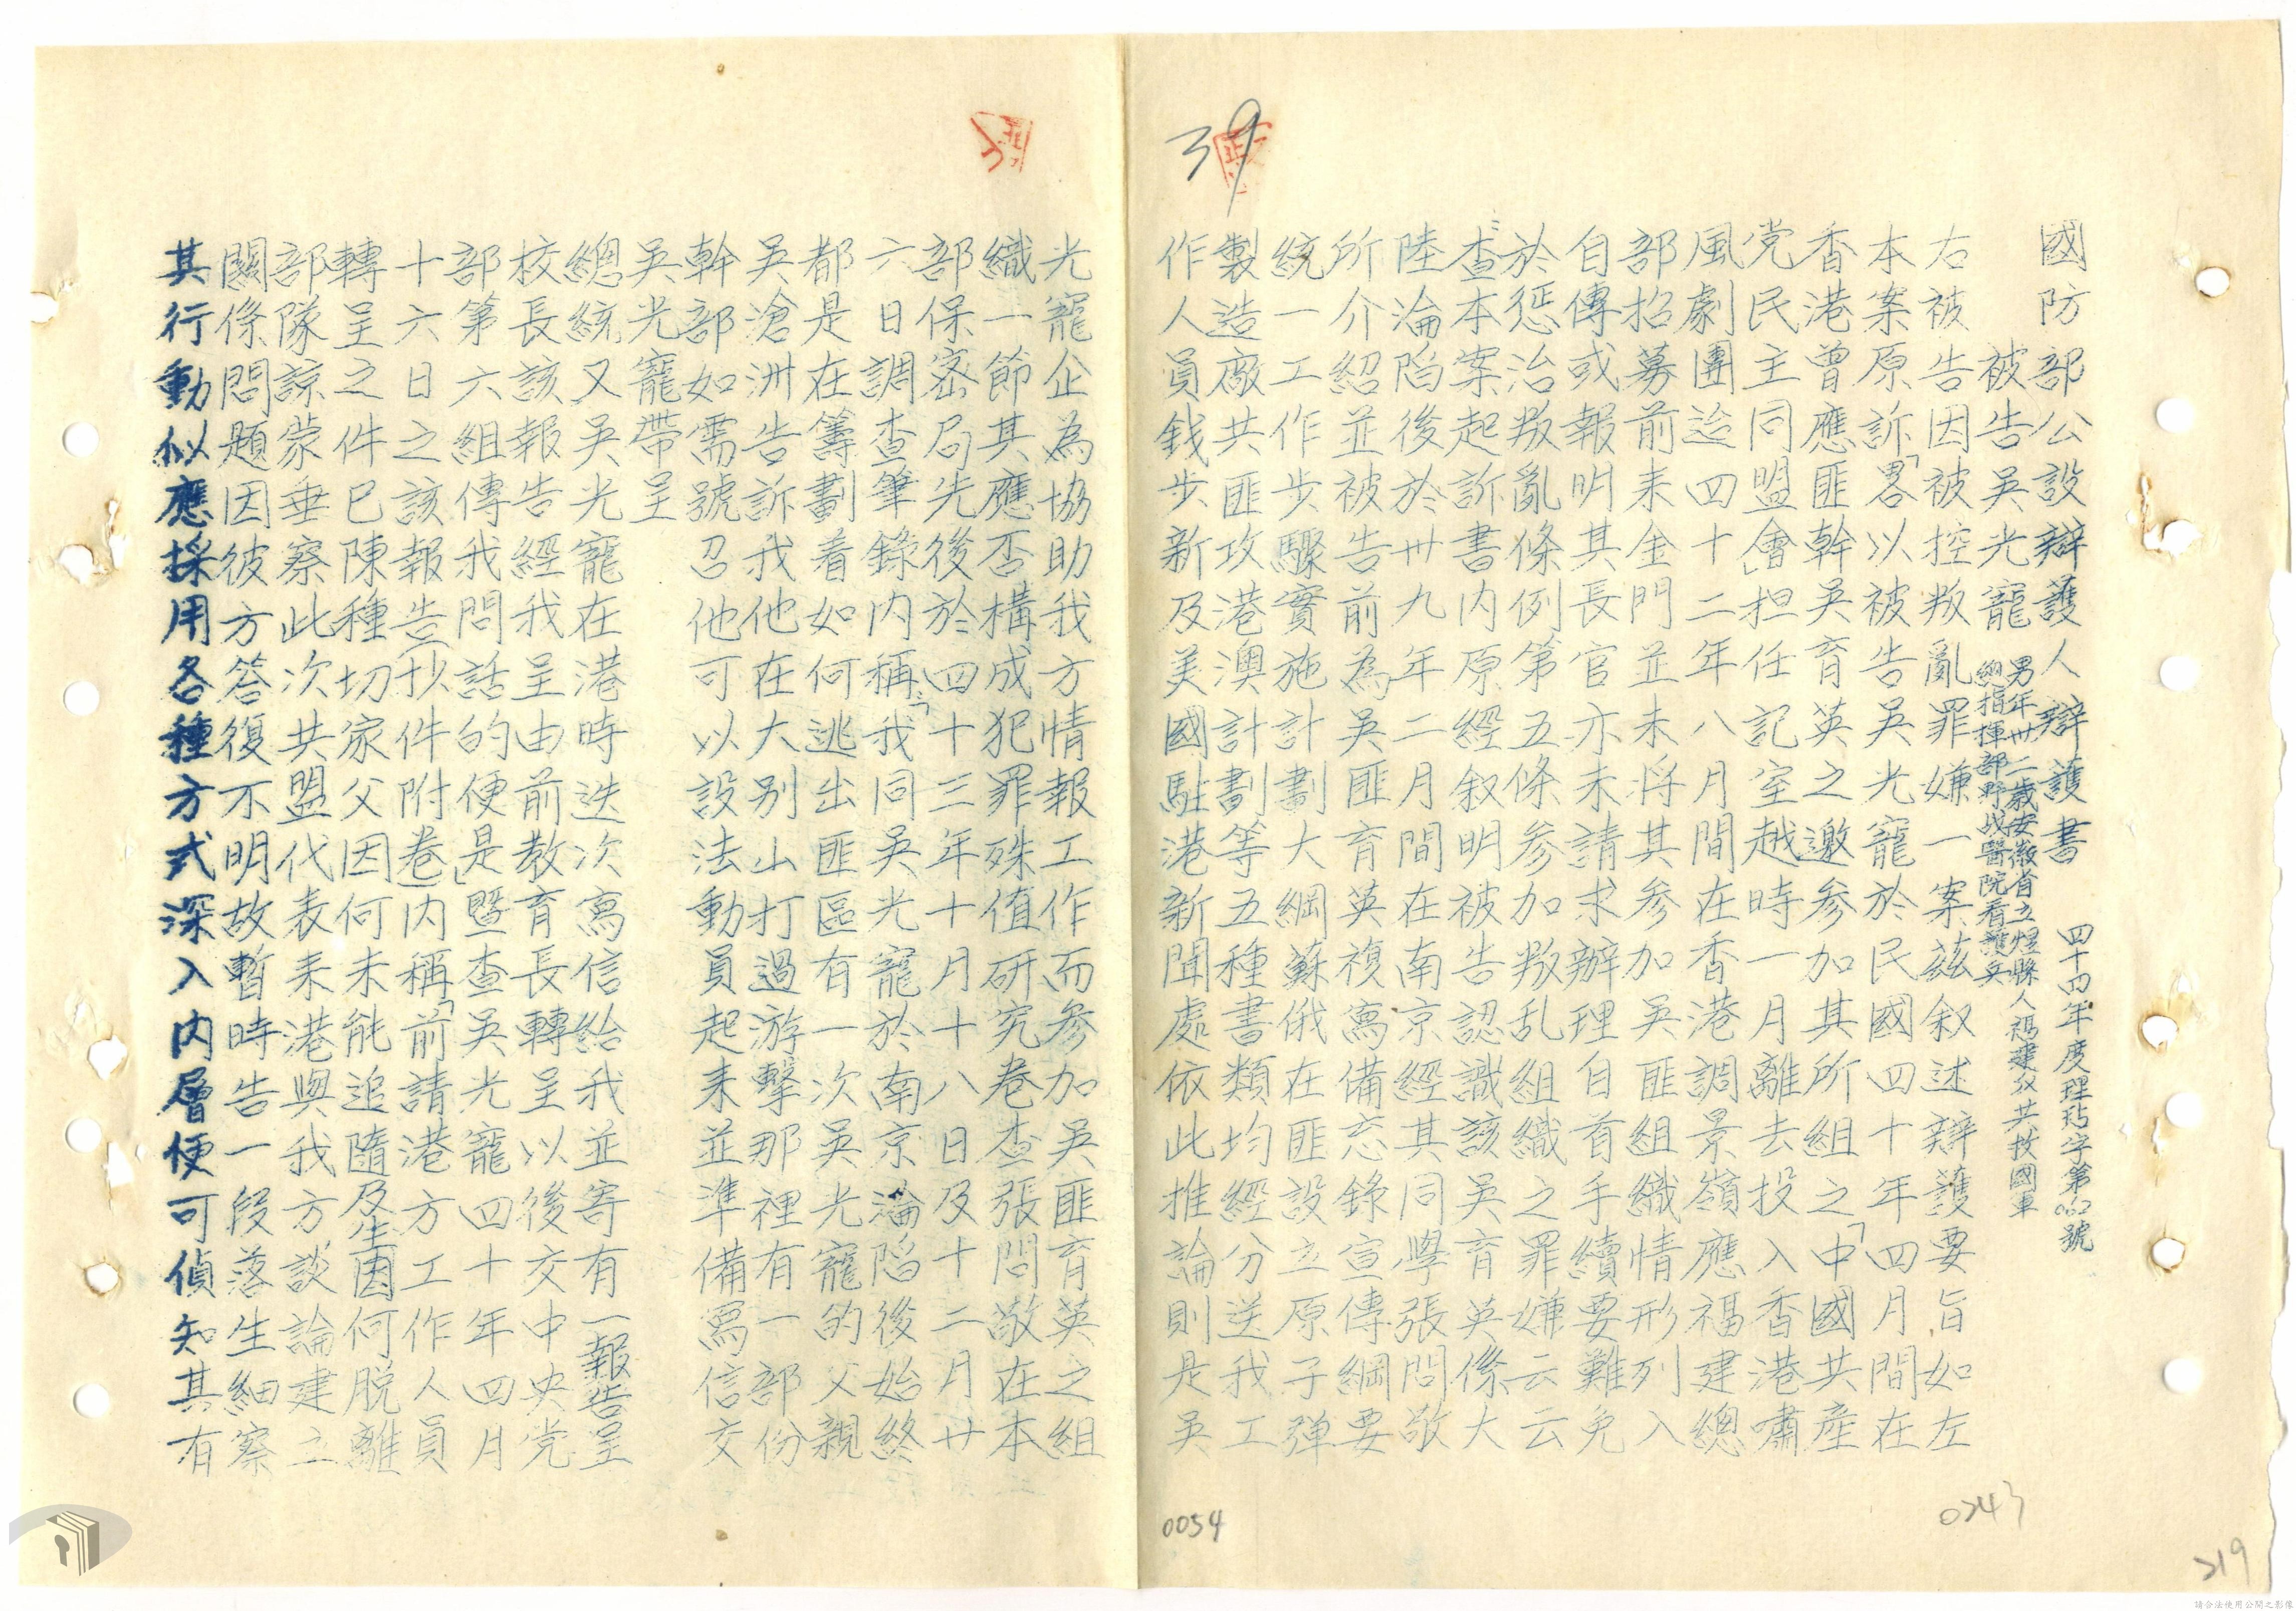 國防部公設辯護人辯護書
四十四年度理珍字第062號
被告吳光寵
男年卅二歲安徽省立煌縣人福建反共救國軍
總指揮部野戰醫院看護兵
右被告因被控叛亂罪嫌一案茲叙述辯護要旨如左
本案原訴「畧以被告吳光寵於民國四十年四月間在
香港曾應匪幹吳育英之邀參加其所組之「中國共產
党民主同盟會」担任記室越時一月離去投入香港嘯
風劇團迨四十二年八月間在香港調景嶺應福建總
部招募前来金門並未将其參加吳匪組織情形列入
自傳或報明其長官亦未請求辦理自首手續要難免
於惩治叛亂條例第五條參加叛乱組織之罪嫌云云
查本案起訴書内原經叙明被告認識該吳育英係大
陸淪陷後於卅九年二月間在南京經其同學張問敬
所介紹並被告前為吳匪育英複寫備忘錄宣傳綱要
統一工作步驟實施計劃大綱蘇俄在匪設立原子彈
製造廠共匪攻港澳計劃等五種書類均經分送我工
作人員錢步新及美國駐港新聞處依此推論則是吳
光寵企為協助我方情報工作而參加吳匪育英之組
織一節其應否構成犯罪殊值研究卷查張問敬在本
部保密局先後於四十三年十月十八日及十二月廿
六日調查筆錄内稱「我同吳光寵於南京淪陷後始終
都是在籌劃着如何逃出匪區有一次吳光寵的父親
吳滄洲告訴我他在大別山打過游擊那裡有一部份
幹部如需號召他可以設法動員起来並準備寫信交
吳光寵帶呈
總統又吳光寵在港時迭次寫信給我並寄有一報告呈
校長該報告經我呈由前教育長轉呈以後交中央党
部第六組傳我問話的便是」暨查吳光寵四十年四月
十六日之該報告(抄件附卷)内稱「前請港方工作人員
轉呈之件已陳種切家父因何未能追隨及生因何脱離
部隊諒蒙垂察此次共盟代表来港與我方談論建立
關係問題因彼方答復不明故暫時告一段落生細察
其行動似應採用各種方式深入内層便可偵知其有
39
0054
0243
219
請合法使用公開之影像